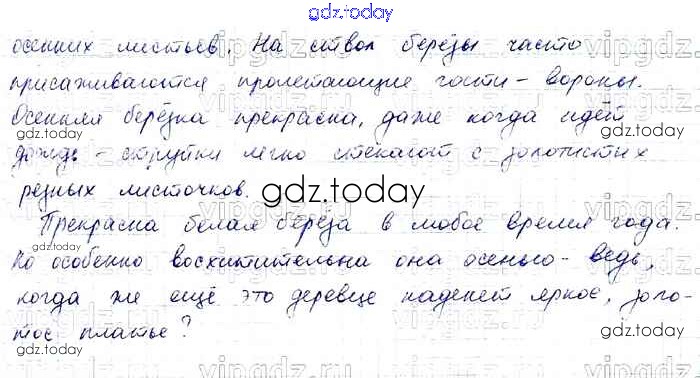 gdz.today
осенних листьев. На ствол берёзы часто
присаживаются пролетающие гости - вороны.
Осенняя берёзка прекрасна, даже когда идёт
gdz.today
gdz.today
дождь - струйки легко стекают с золотистых
резных листочков.
gdz.today
Прекрасна белая берёза в любое время года.
gdz.today
gdz.today
Но особенно восхитительна она осенью - ведь,
когда же ещё это деревце наденет яркое, золо-
тое платье?
gdz.today
gdz.today